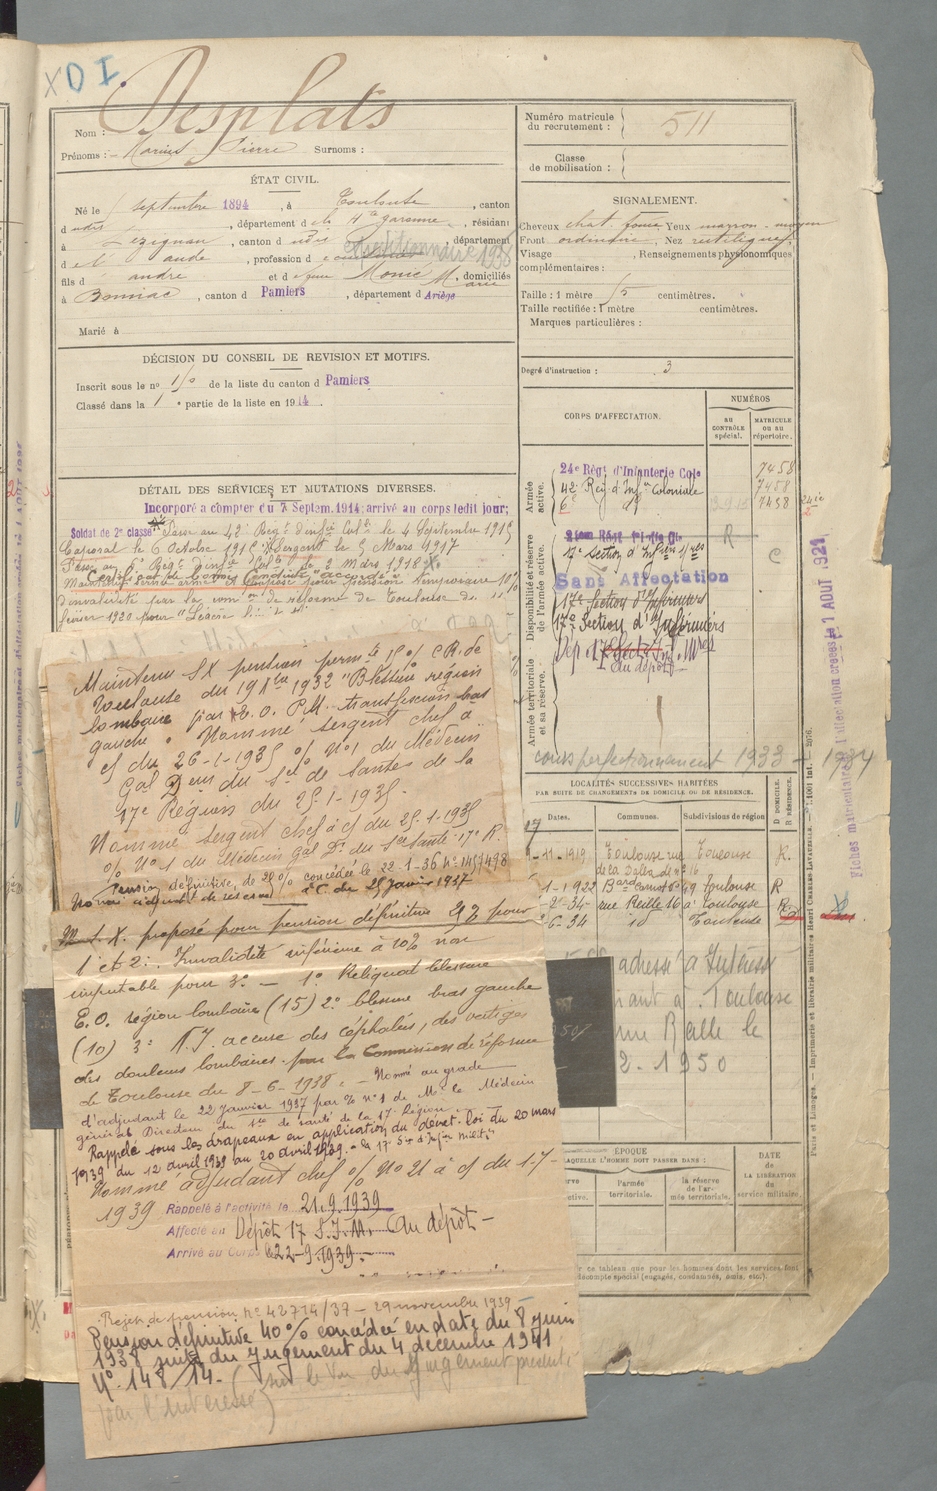 X D I
Desplats
Nom :
Prénoms : Marius Pierre Surnoms :
ÉTAT CIVIL.
Né le septembre 1894, à Toulouse, canton
dudit, département de Hte Garonne, résidant
à Lézignan, canton dudit, département
de l' aude, profession d
fils d andré et de Monié Marie, domiciliés
à Bonnac, canton d Pamiers, département d Ariège
Marié à
DÉCISION DU CONSEIL DE REVISION ET MOTIFS.
Inscrit sous le no de la liste du canton d Pamiers
Classé dans la 1e partie de la liste en 1914.
DÉTAIL DES SERVICES ET MUTATIONS DIVERSES.
Incorporé à compter du 7 Septem. 1914; arrivé au corps ledit jour;
Soldat de 2e classe Passé au 42e Regt d'infie Colle le 4 Septembre 1915
Caporal le 6 Octobre 1915 Sergent le 5 Mars 1917
Passé au 6e Regt d'infie Colle le 2 mars 1918
Certificat de bonne conduite "accordé"
Maintenu service armé et proposé pour pension temporaire 10%
d'invalidité par la comon de réforme de Toulouse du 11
février 1920 pour "Légère
Maintenu SX pension permte 15% C.R. de
Toulouse du 19 1932 "Blessure région
lombaire par E.O. P.M. transfixion bras
gauche". Nommé sergent chef à
cf du 26-1-1935 % No 1 du Médecin
Gal Deur du Sce de Santé de la
17e Région du 25-1-1935.
Nomme sergent chef à cf du 25-1-1935
% No 1 du Médecin Gal Dr du Sce Santé 17e R.
Pension définitive, de 20% concédée le 22-1-36 No 1457498
Nommé adjudant de réserve à C. du 25 Janvier 1937
M.S.X. proposé pour pension définitive 25% pour
1 et 2: Invalidité inférieure à 10% non
imputable pour 3o — 1o Reliquat blessure
E.O. région lombaire (15) 2o blessure bras gauche
(10) 3o N.I. accuse des céphalées, des vertiges
des douleurs lombaires par la Commission de réforme
de Toulouse du 8-6-1938 = Nommé au grade
d'adjudant le 22 janvier 1937 par % no 1 de Mr le Médecin
général Directeur du Sce de santé de la 17e Région.
Rappelé sous les drapeaux en application du décret-loi du 20 mars
1939 du 12 avril 1939 au 20 avril 1939. à la 17e Son d'Infers Milit
Nommé adjudant chef % No 21 à cf du 1-7-
1939 Rappelé à l'activité le 21.9.1939
Affecté au Dépôt 17 S.I.M. du dépôt —
Arrivé au Corps le 22-9-1939.-
Rejet de pension No 42714/37 — 29 novembre 1939 —
Pension définitive 40% concédée en date du 8 juin
1938 suite du Jugement du 4 décembre 1941
No 148/14. (sur le vu du Jugement présenté
par l'intéressé)
Numéro matricule
du recrutement : 511
Classe
de mobilisation :
SIGNALEMENT.
Cheveux chat. foncé Yeux marron - moyen
Front ordinaire, Nez rectiligne
Visage , Renseignements physionomiques
complémentaires :
Taille : 1 mètre centimètres.
Taille rectifiée : 1 mètre centimètres.
Marques particulières :
Degré d'instruction : 3
CORPS D'AFFECTATION.
NUMÉROS
AU CONTRÔLE spécial.
MATRICULE OU AU répertoire.
Armée active.
24e Régt d'Infanterie Cole 7458
42e Regt d'Infie Coloniale 7458
6e d° 7458
Disponibilité et réserve de l'armée active.
17e Section d'Infirmiers
Sans Affectation
17e Section d'Infirmiers
17e Section d'Infirmiers
Armée territoriale et sa réserve.
du dépôt
cours perfectionnement 1933 - 1934
LOCALITÉS SUCCESSIVES HABITÉES
PAR SUITE DE CHANGEMENTS DE DOMICILE OU DE RÉSIDENCE.
D DOMICILE.
R RÉSIDENCE.
Dates.
Communes.
Subdivisions de région
-11-1919 Toulouse rue de la Dalbade no 16 Toulouse R.
1-1922 Bard Carnot no 49 Toulouse R
-2-34 rue Reille 16 à Toulouse R
-6-34 10 Toulouse
adresse à Intéressé
à Toulouse
rue Reille le
2.1950
ÉPOQUE
LAQUELLE L'HOMME DOIT PASSER DANS :
l'armée territoriale.
la réserve de l'armée territoriale.
DATE de LA LIBÉRATION du service militaire.
ce tableau que pour les hommes dont les services font
décompte spécial (engagés, condamnés, omis, etc.).
Paris et Limoges. — Imprimerie et librairie militaires Henri CHARLES-LAVAUZELLE.
Fiches matricules et d'affectation créées le 1 AOUT 1921